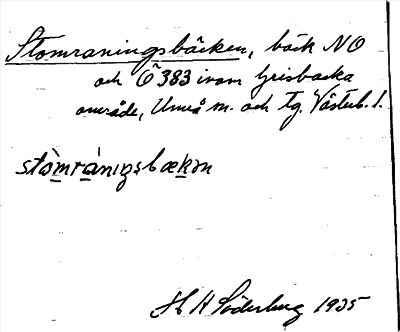 Stomraningsbäcken, bäck NO
och Ö 383 inom Grisbacka
område, Umeå sn. och tg. Västerb. l.
stòmrànıgsbækən
H A Söderberg 1935